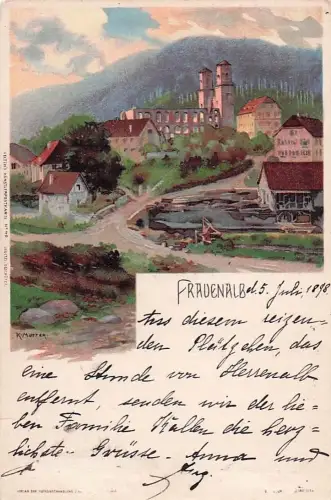 FRAUENALB d. 5. Juli, 1898
Aus diesem reizen-
den Plätzchen, das
eine Stunde von Herrenalb
entfernt, senden wir der lie-
ben Familie Kallen die herz-
lichste Grüsse. Anna und
K. Mutter